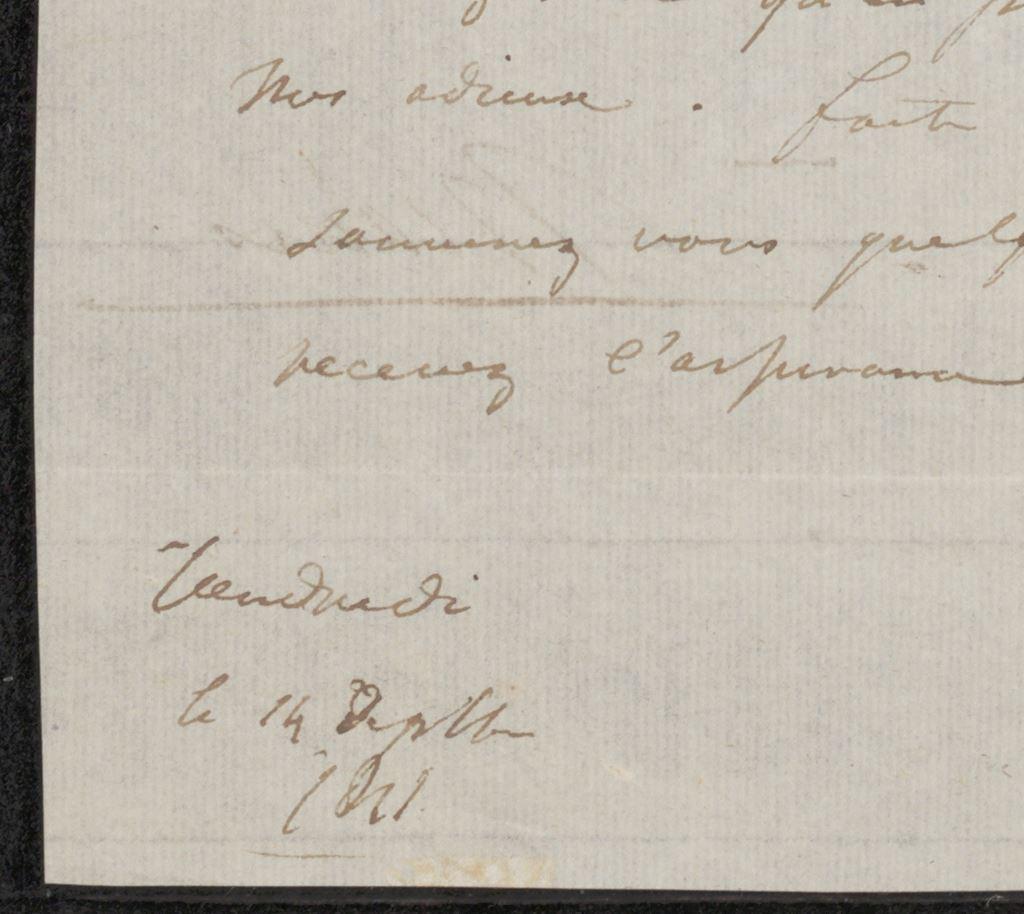 qu'en
Nos adieux. faite
Souvenez vous quelq
recevez l'assurance
Vendredi
le 14 Septbre